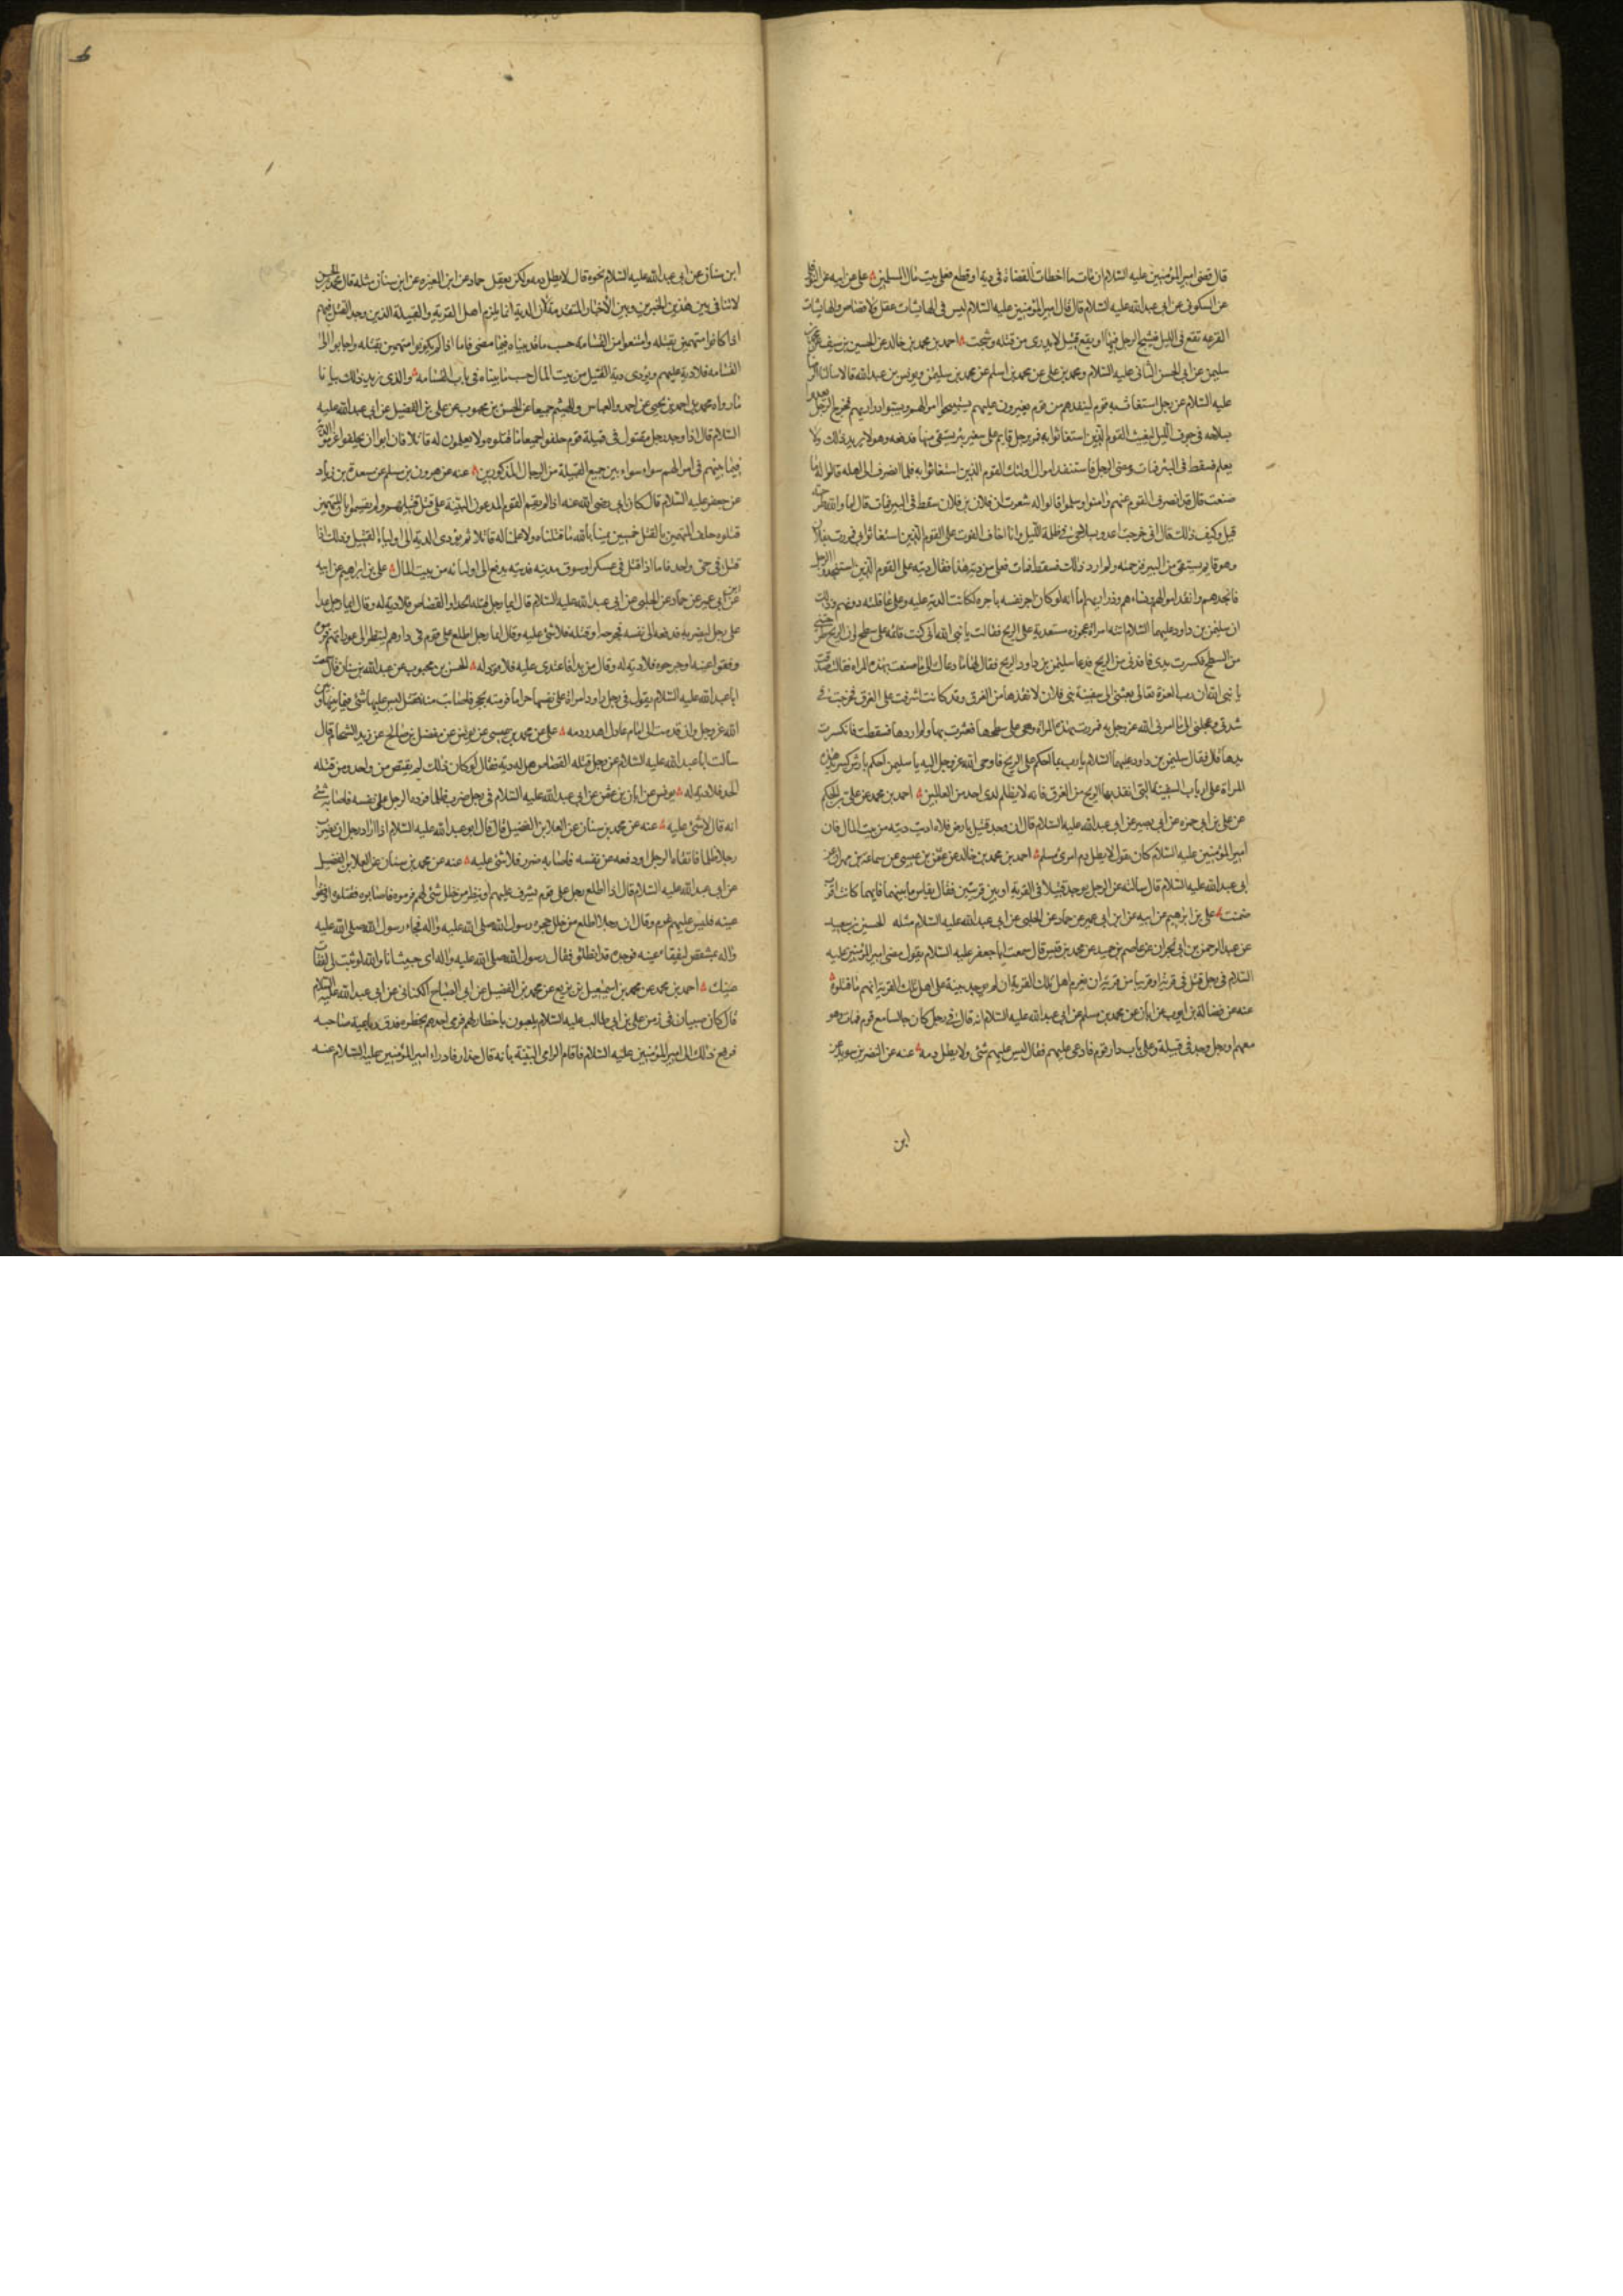 قال قضى امير المؤمنين عليه السلام ان ما اخطات القضاة فى دية او قطع فعلى بيت مال المسلمين علي عن ابيه عن النوفلى
عن السكونى عن ابى عبد الله عليه السلام قال قال امير المؤمنين عليه السلام ليس فى الهائشات عقل ولا قصاص والهائشات
الفزعة تقع فى الليل فيشج الرجل فيها او يقع قتيل لا يدرى من قتله وشجه احمد بن محمد بن خالد عن الحسين بن سيف عن محمد بن
سليمن عن ابى الحسن الثانى عليه السلام ومحمد بن على عن محمد بن اسلم عن محمد بن سليمن ويونس بن عبد الله قالا سالنا
عليه السلام عن رجل استغاث به قوم لينقذهم من قوم يغيرون عليهم ليستبيحوا اموالهم ويسبوا ذراريهم فخرج الرجل
بسلاحه فى جوف الليل ليغيث القوم الذين استغاثوا به فمر برجل قايم على شفير بئر يستقى منها فدفعه وهو لا يريد ذلك ولا
يعلم فسقط فى البئر فمات ومضى الرجل فاستنقذ اموال اولئك القوم الذين استغاثوا به فلما انصرف الى اهله قالوا له ما
صنعت قال قد انصرف القوم عنهم وامنوا وسلموا قالوا له شعرت ان فلان بن فلان سقط فى البير فمات قال انا والله طرحته
قيل وكيف ذلك قال انى خرجت اعدو بسلاحى فى ظلمة الليل وانا اخاف الفوت على القوم الذين استغاثوا بى فمررت بفلان
وهو قايم يستقى من البير فزحمته ولم ارد ذلك فسقط فمات فعلى من دية هذا فقال ديته على القوم الذين استنجدوا الرجل
فانجدهم وانقذ اموالهم ونساءهم وذراريهم اما انه لو كان اجر نفسه باجرة لكانت الدية عليه وعلى عاقلته دونهم وذلك
ان سليمن بن داود عليهما السلام اتته امراة عجوزة مستعدية على الريح فقالت يا نبى الله انى كنت قائمة على سطح لى وان الريح طرحتنى
من السطح فكسرت يدى فاقدنى من الريح فدعا سليمن بن داود الريح فقال لها ما دعاك الى ما صنعت بهذه المراة فقالت صدقت
يا نبى الله ان رب العزة تعالى بعثنى الى سفينة بنى فلان لانقذها من الغرق وقد كانت اشرفت على الغرق فخرجت فى
شدتى وعجلتى الى ما امرنى الله عز وجل به فمررت بهذه المراة وهى على سطحها فعثرت بها ولم اردها فسقطت فانكسرت
يدها قال فقال سليمن بن داود عليهما السلام يا رب بما احكم على الريح فاوحى الله عز وجل اليه يا سليمن احكم بارش كسر يد هذه
المراة على ارباب السفينة التى انقذ بها الريح من الغرق فانه لا يظلم لدى احد من العالمين احمد بن محمد عن على بن الحكم
عن على بن ابى حمزة عن ابى بصير عن ابى عبد الله عليه السلام قال ان وجد قتيل بارض فلاة اديت ديته من بيت المال فان
امير المؤمنين عليه السلام كان يقول لا يطل دم امرئ مسلم احمد بن محمد بن خالد عن عثمن بن عيسى عن سماعة بن مهران عن
ابى عبد الله عليه السلام قال سالته عن الرجل يوجد قتيلا فى القرية او بين قريتين فقال يقاس ما بينهما فايهما كانت اقرب
ضمنت على بن ابرهيم عن ابيه عن ابن ابى عمير عن حماد عن الحلبى عن ابى عبد الله عليه السلام مثله الحسين بن سعيد
عن عبد الرحمن بن ابى نجران عن عاصم بن حميد عن محمد بن قيس قال سمعت ابا جعفر عليه السلام يقول قضى امير المؤمنين عليه
السلام فى رجل قتل فى قرية او قريبا من قرية ان يغرم اهل تلك القرية ان لم يوجد بينة على اهل تلك القرية انهم ما قتلوه
عنه عن فضالة بن ايوب عن ابان عن محمد بن مسلم عن ابى عبد الله عليه السلام انه قال فى رجل كان جالسا مع قوم فمات وهو
معهم او رجل وجد فى قبيلة وعلى باب دار قوم فادعى عليهم فقال ليس عليهم شئ ولا يطل دمه عنه عن النضر بن سويد عن
ابن
ابن سنان عن ابى عبد الله عليه السلام نحوه قال لا يطل دمه ولكن يعقل حماد عن ابن المغيرة عن ابن سنان مثله قال محمد بن الحسن
لا تنافى بين هذين الخبرين وبين الأخبار المتقدمة لان الدية انما يلزم اهل القرية والقبيلة الذين وجد القتيل فيهم
اذا كانوا متهمين بقتله وامتنعوا من القسامة حسب ما قد بيناه فيما مضى فاما اذا لم يكونوا متهمين بقتله واجابوا الى
القسامة فلا دية عليهم ويؤدى دية القتيل من بيت المال حسب ما بيناه فى باب القسامة والذى يزيد ذلك بيانا
ما رواه محمد بن احمد بن يحيى عن احمد والعباس والهيثم جميعا عن الحسن بن محبوب عن على بن الفضيل عن ابى عبد الله عليه
السلام قال اذا وجد رجل مقتول فى قبيلة قوم حلفوا جميعا ما قتلوه ولا يعلمون له قاتلا فان ابوا ان يحلفوا غرموا الدية
فيما بينهم فى اموالهم سواء سواء بين جميع القبيلة من الرجال المدركين عنه عن هرون بن مسلم عن مسعدة بن زياد
عن جعفر عليه السلام قال كان ابى رضى الله عنه اذا لم يقم القوم المدعون البينة على قتل قتيلهم ولم يقسموا بان المتهمين
قتلوه حلف المتهمين بالقتل خمسين يمينا بالله ما قتلناه ولا علمنا له قاتلا ثم يؤدى الدية الى اولياء القتيل وذلك اذا
قتل فى حى واحد فاما اذا قتل فى عسكر او سوق مدينة فديته يدفع الى اوليائه من بيت المال على بن ابراهيم عن ابيه
عن ابن ابى عمير عن حماد عن الحلبى عن ابى عبد الله عليه السلام قال ايما رجل قتله الحد او القصاص فلا دية له وقال ايما رجل عدا
على رجل ليضربه فدفعه الى نفسه فجرحه او قتله فلا شئ عليه وقال ايما رجل اطلع على قوم فى دارهم لينظر الى عوراتهم فرموه
وفقئوا عينه او جرحوه فلا دية له وقال من بدا فاعتدى عليه فلا قود له الحسن بن محبوب عن عبد الله بن سنان قال سمعت
ابا عبد الله عليه السلام يقول فى رجل راود امراة على نفسها حراما فرمته بحجر فاصابت منه مقتلا ليس عليها شئ فيما بينها وبين
الله عز وجل وان قدمت الى امام عادل اهدر دمه على عن محمد بن عيسى عن يونس عن مفضل بن صالح عن زيد الشحام قال
سالت ابا عبد الله عليه السلام عن رجل قتله القصاص هل له دية فقال لو كان ذلك لم يقتص من واحد ومن قتله
الحد فلا دية له يونس عن ابان بن عثمن عن ابى عبد الله عليه السلام فى رجل ضرب ظلما فرده الرجل على نفسه فاصابه شئ
انه قال لا شئ عليه عنه عن محمد بن سنان عن العلا بن الفضيل قال قال ابو عبد الله عليه السلام اذا اراد رجل ان يضرب
رجلا ظلما فاتقاه الرجل او دفعه عن نفسه فاصابه ضرر فلا شئ عليه عنه عن محمد بن سنان عن العلا بن الفضيل
عن ابى عبد الله عليه السلام قال اذا اطلع رجل على قوم يشرف عليهم او ينظر من خلل شئ لهم فرموه فاصابوه فقتلوه او فقئوا
عينه فليس عليهم غرم وقال ان رجلا اطلع من خلل حجرة رسول الله صلى الله عليه واله فجاء رسول الله صلى الله عليه
واله بمشقص ليفقاء عينه فوجده قد انطلق فقال رسول الله صلى الله عليه واله اى خبيث اما والله لو ثبت لى لفقات
عينك احمد بن محمد عن محمد بن اسمعيل بن بزيع عن محمد بن الفضيل عن ابى الصباح الكنانى عن ابى عبد الله عليه السلام
قال كان صبيان فى زمن على بن ابى طالب عليه السلام يلعبون باخطار لهم فرمى احدهم بخطره فدق رباعية صاحبه
فرفع ذلك الى امير المؤمنين عليه السلام فاقام الرامى البينة بانه قال حذار فادراء امير المؤمنين عليه السلام عنه